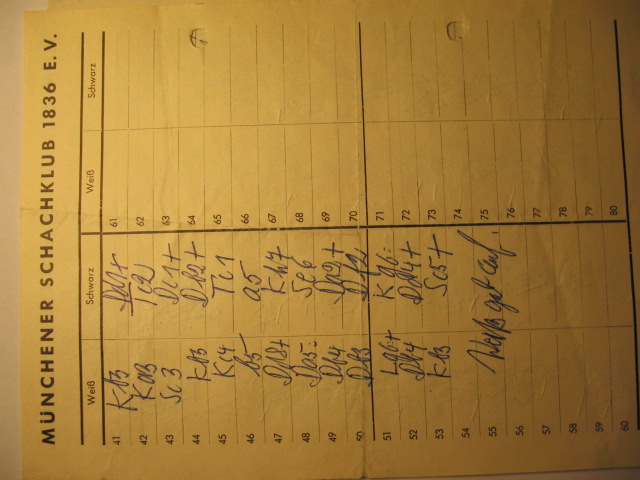 MÜNCHENER SCHACHKLUB 1836 E. V.
Weiß Schwarz Weiß Schwarz
41 Kb3 61
42 Ka3 Tc2 62
43 Sc3 Dc1+ 63
44 Kb3 Db2+ 64
45 Kc4 Tc1 65
46 b5 a5 66
47 Db8+ Kh7 67
48 Da5: Se6 68
49 Db4 Da2+ 69
50 Db3 70
51 Lg6+ Kg6: 71
52 Dd4+ 72
53 Kb3 Sc5+ 73
54 74
55 Weiß gibt auf. 75
56 76
57 77
58 78
59 79
60 80